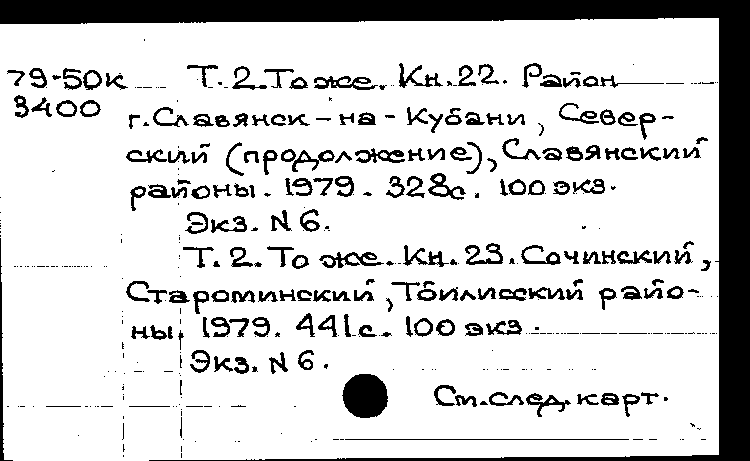 79-50к Т. 2. То же. Кн. 22. Район
3400 г. Славянск-на-Кубани, Север-
ский (продолжение), Славянский
районы. 1979. 328с. 100 экз.
Экз. N 6.
Т. 2. То же. Кн. 23. Сочинский,
Староминский, Тбилисский райо-
ны. 1979. 441с. 100 экз.
Экз. N 6.
См. след. карт.